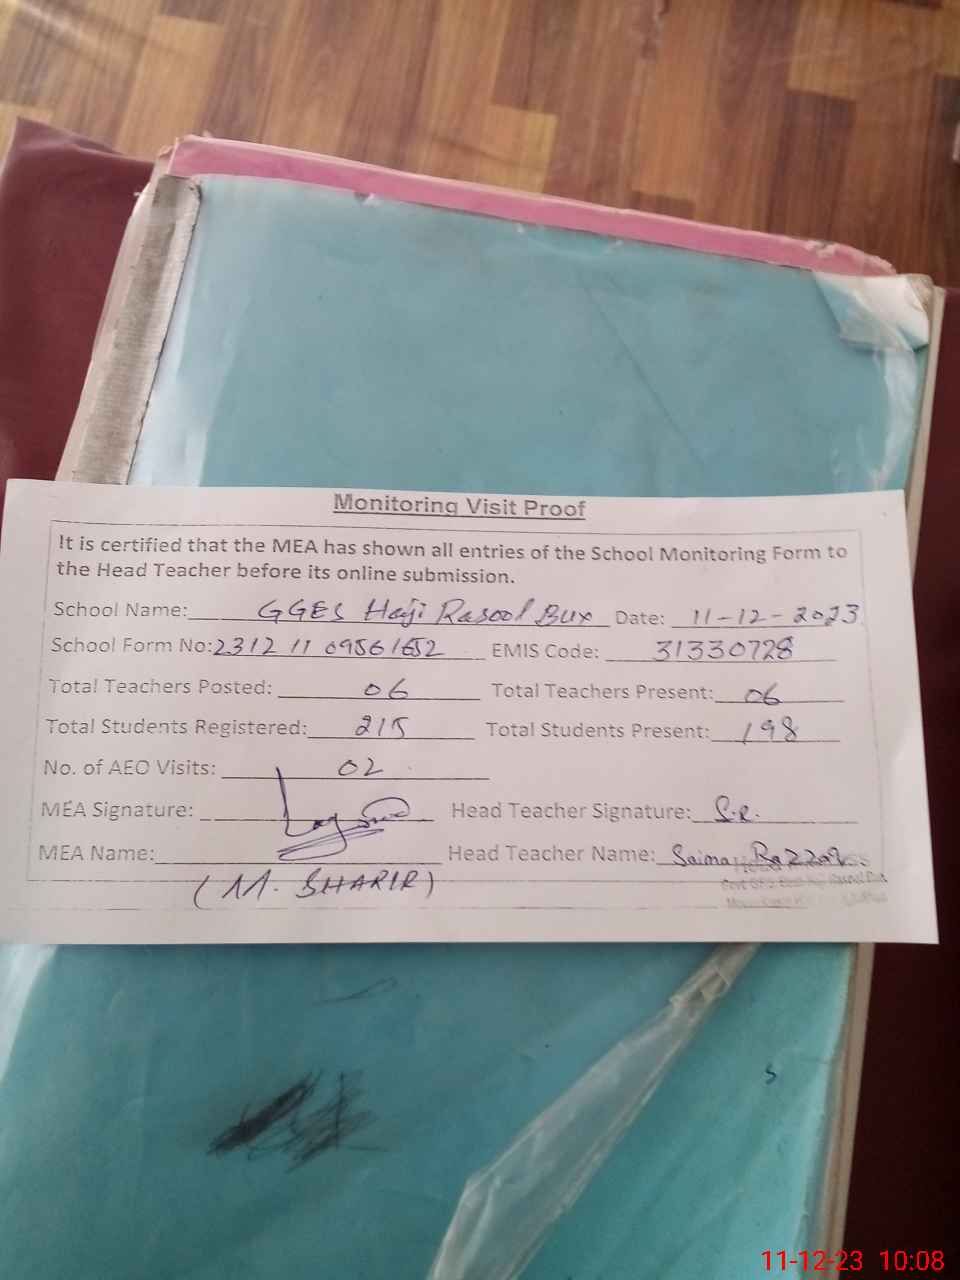 Monitoring Visit Proof
It is certified that the MEA has shown all entries of the School Monitoring Form to
the Head Teacher before its online submission.
School Name: GGES Haji Rasool Bux Date: 11-12-2023
School Form No: 2312 11 09561652 EMIS Code: 31330728
Total Teachers Posted: 06 Total Teachers Present: 06
Total Students Registered: 215 Total Students Present: 198
No. of AEO Visits: 02
MEA Signature: Head Teacher Signature: S.R.
MEA Name: Head Teacher Name: Saima Razzaq
(M. SHARIR)
Rasool Bux
11-12-23 10:08